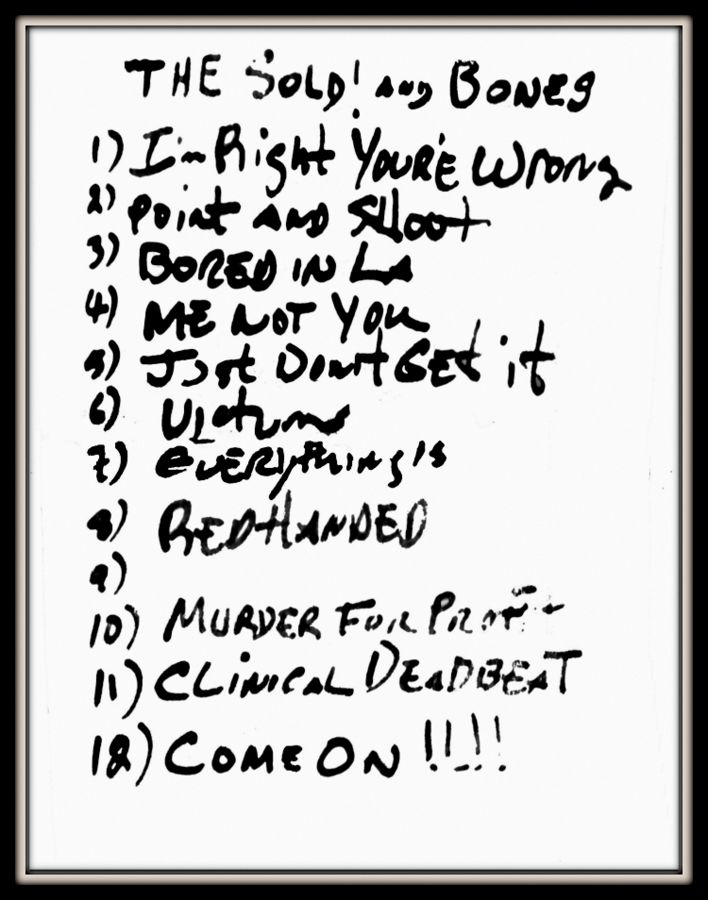 THE SOLD! AND BONES
1) I'm Right YOU'RE WRONG
2) POINT AND SHOOT
3) BORED IN LA
4) ME NOT YOU
5) Just Don't GET it
6)
7) EVERYTHING IS
8) REDHANDED
9)
10) MURDER FOR PROFIT
11) CLINICAL DEADBEAT
12) COME ON !!!!